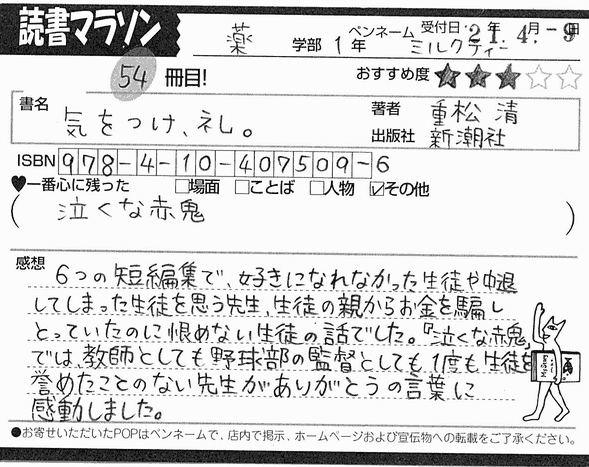 読書マラソン
薬 学部 1年 ペンネーム ミルクティー 受付日・21年 4.月-9日
54 冊目! おすすめ度 ★★★☆☆
書名 気をつけ、礼。 著者 重松 清
出版社 新潮社
ISBN 978-4-10-407509-6
♥一番心に残った □場面 □ことば □人物 ☑その他
( 泣くな赤鬼 )
感想 6つの短編集で、好きになれなかった生徒や中退
してしまった生徒を思う先生、生徒の親からお金を騙し
とっていたのに恨めない生徒の話でした。『泣くな赤鬼』
では、教師としても野球部の監督としても1度も生徒を
誉めたことのない先生がありがとうの言葉に
感動しました。
●お寄せいただいたPOPはペンネームで、店内で掲示、ホームページおよび宣伝物への転載をご了承ください。